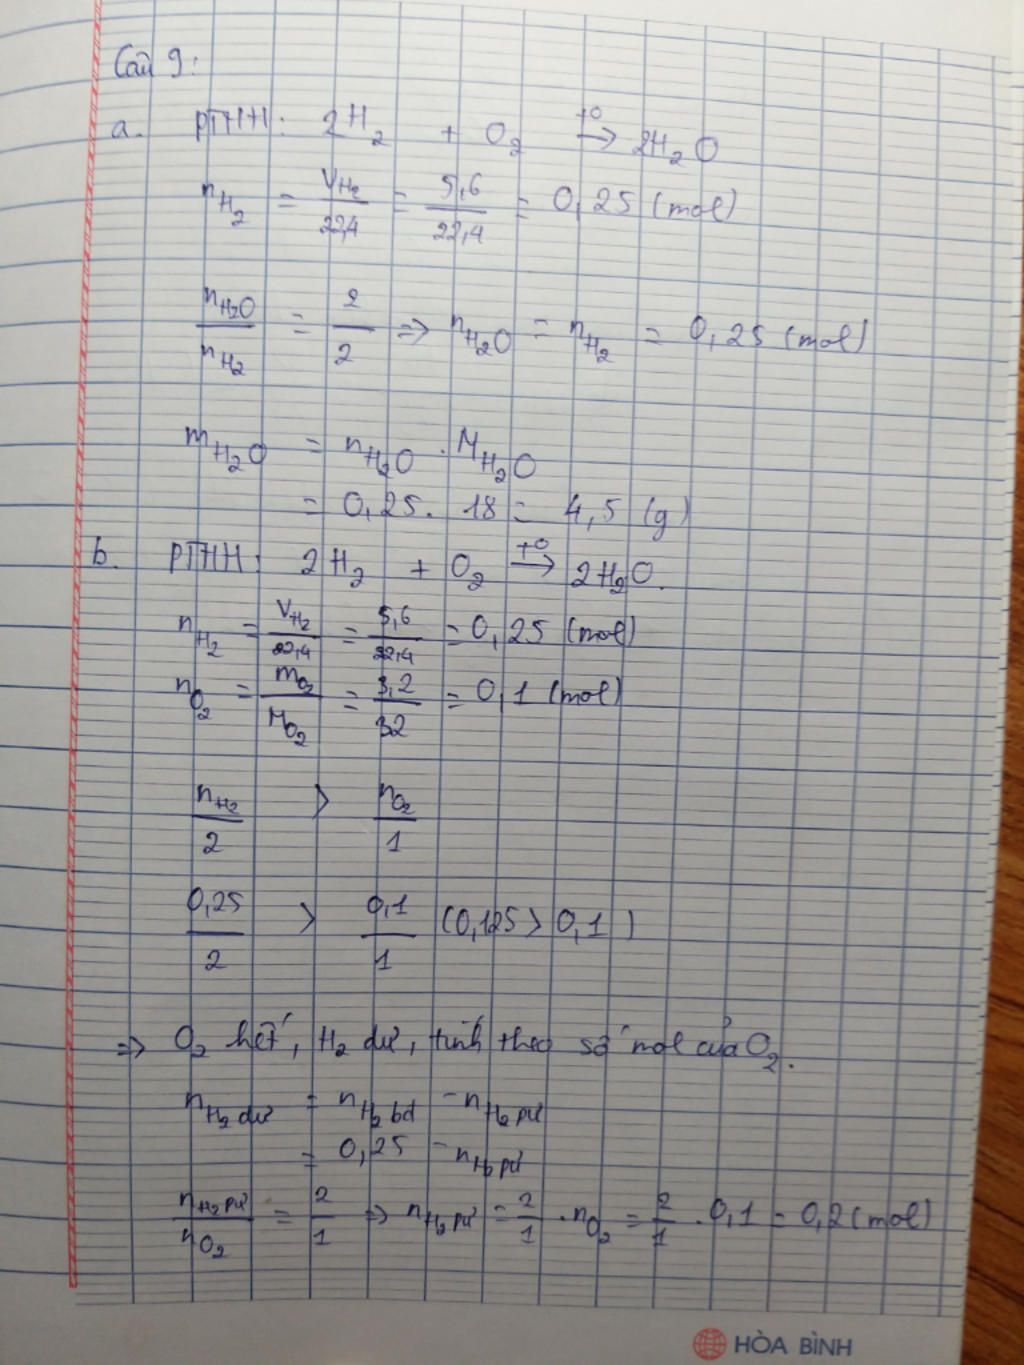 Câu 9:
a. PTHH: 2H₂ + O₂ →(t⁰) 2H₂O
n_H₂ = V_H₂/22,4 = 5,6/22,4 = 0,25 (mol)
n_H₂O/n_H₂ = 2/2 => n_H₂O = n_H₂ = 0,25 (mol)
m_H₂O = n_H₂O . M_H₂O
= 0,25. 18 = 4,5 (g)
b. PTHH: 2H₂ + O₂ →(t⁰) 2H₂O.
n_H₂ = V_H₂/22,4 = 5,6/22,4 = 0,25 (mol)
n_O₂ = m_O₂/M_O₂ = 3,2/32 = 0,1 (mol)
n_H₂/2 > n_O₂/1
0,25/2 > 0,1/1 (0,125 > 0,1)
=> O₂ hết, H₂ dư, tính theo số mol của O₂.
n_H₂ dư = n_H₂ bđ - n_H₂ pư
= 0,25 - n_H₂ pư
n_H₂ pư/n_O₂ = 2/1 => n_H₂ pư = 2/1 . n_O₂ = 2/1 . 0,1 = 0,2 (mol)
HÒA BÌNH